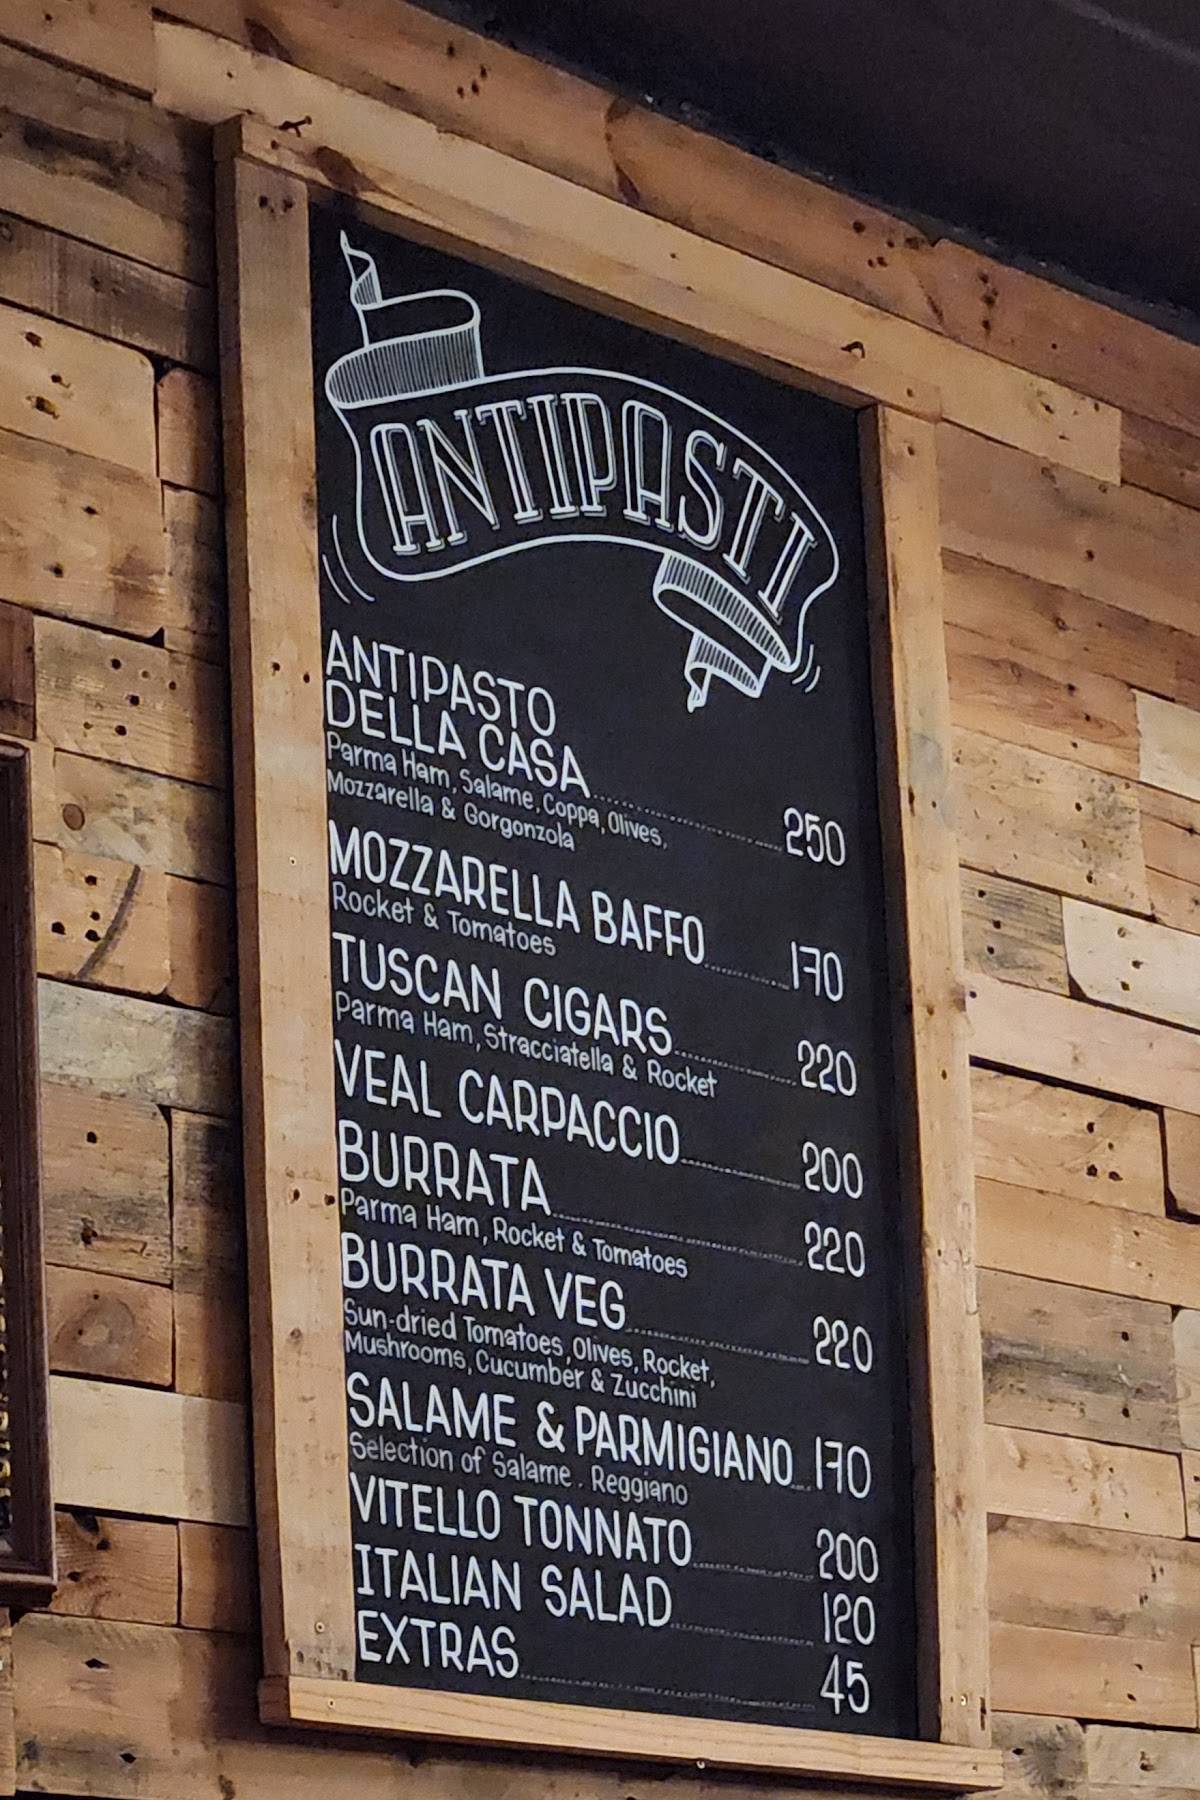 ANTIPASTI
ANTIPASTO
DELLA CASA 250
Parma Ham, Salame, Coppa, Olives,
Mozzarella & Gorgonzola
MOZZARELLA BAFFO 170
Rocket & Tomatoes
TUSCAN CIGARS 220
Parma Ham, Stracciatella & Rocket
VEAL CARPACCIO 200
BURRATA 220
Parma Ham, Rocket & Tomatoes
BURRATA VEG 220
Sun-dried Tomatoes, Olives, Rocket,
Mushrooms, Cucumber & Zucchini
SALAME & PARMIGIANO 170
Selection of Salame . Reggiano
VITELLO TONNATO 200
ITALIAN SALAD 120
EXTRAS 45